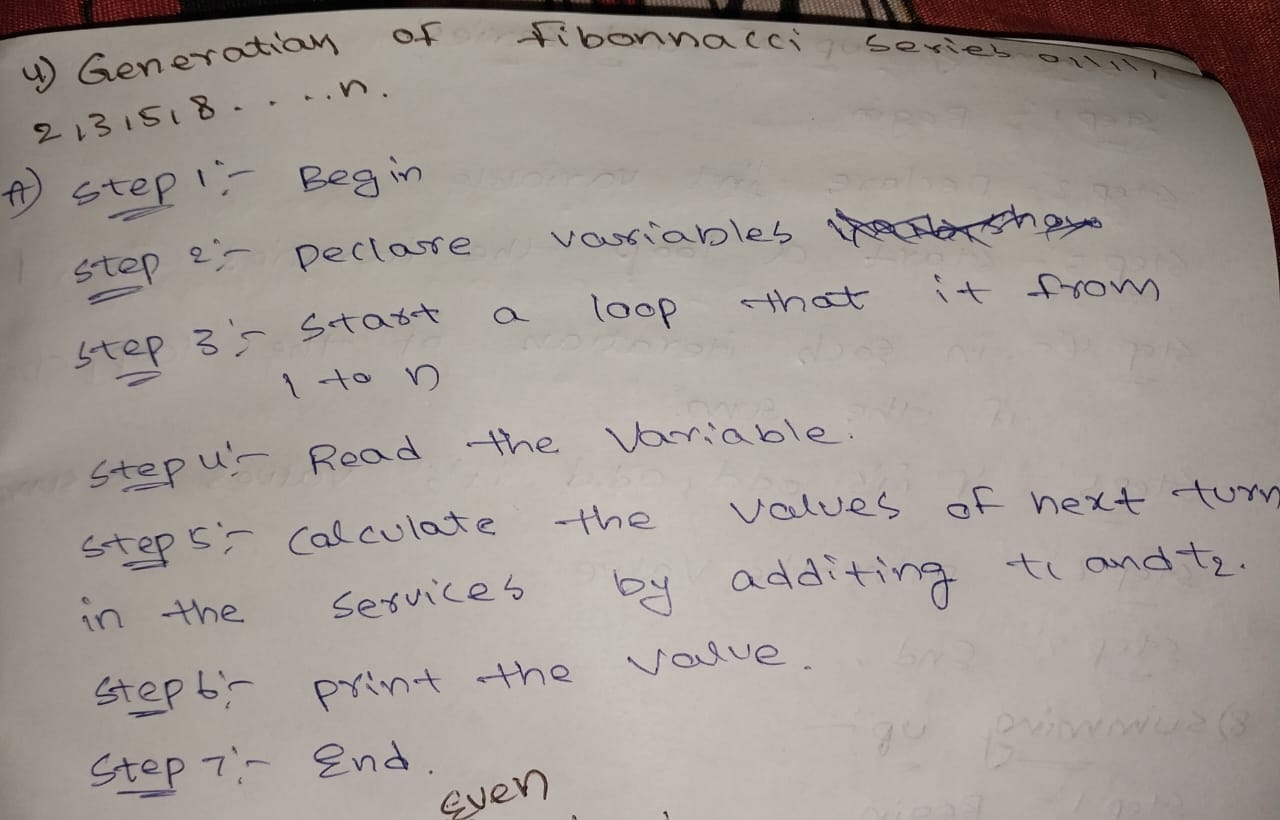 4) Generation of fibonnacci series 0,1,1,
2,3,5,8.....n.
A) Step 1:- Begin
Step 2:- Declare variables
Step 3:- Start a loop that it from
1 to n
Step 4:- Read the Variable.
Step 5:- Calculate the values of next turn
in the services by additing t1 and t2.
Step 6:- print the value.
Step 7:- End.
Even